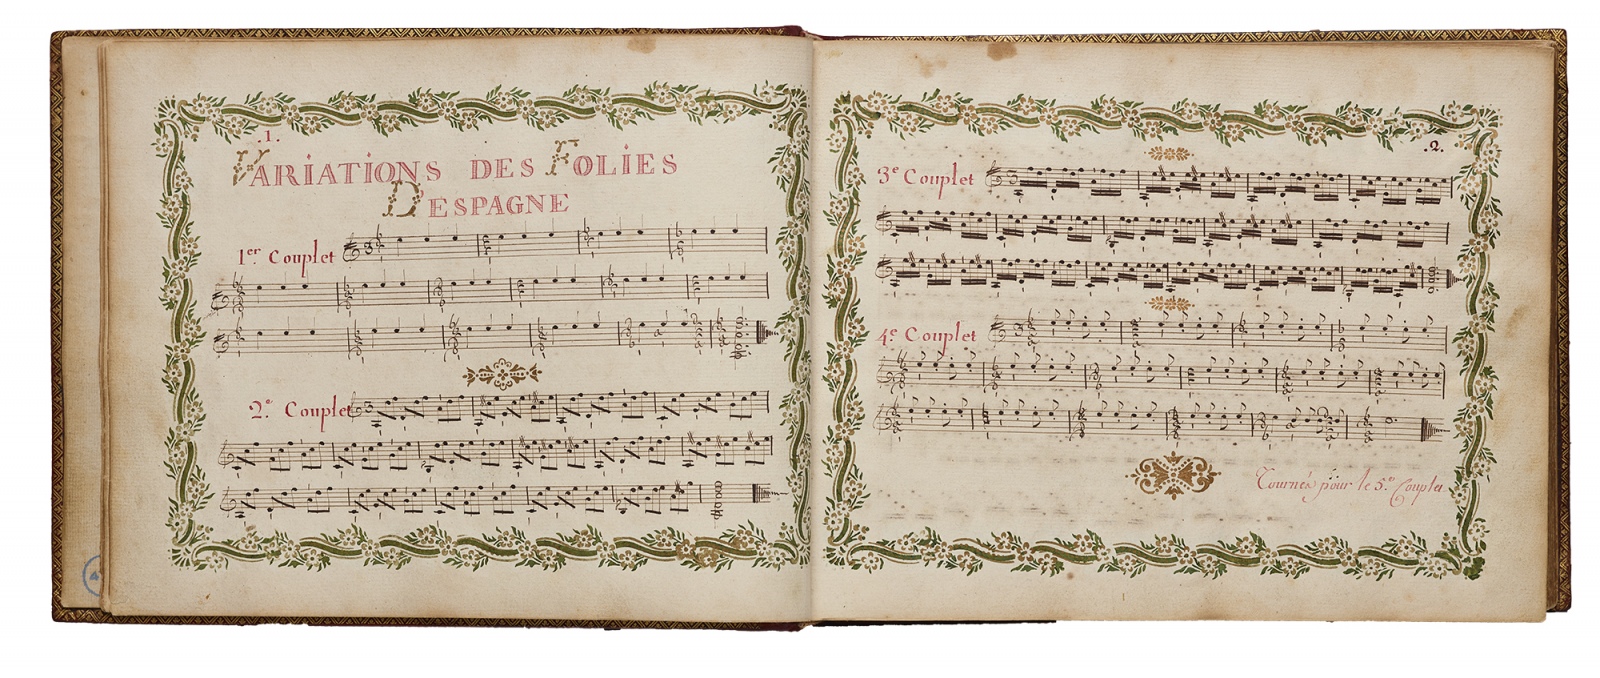 .1.
VARIATIONS DES FOLIES
D'ESPAGNE
1er Couplet
2e Couplet
.2.
3e Couplet
4e Couplet
Tournés pour le 5e Couplet